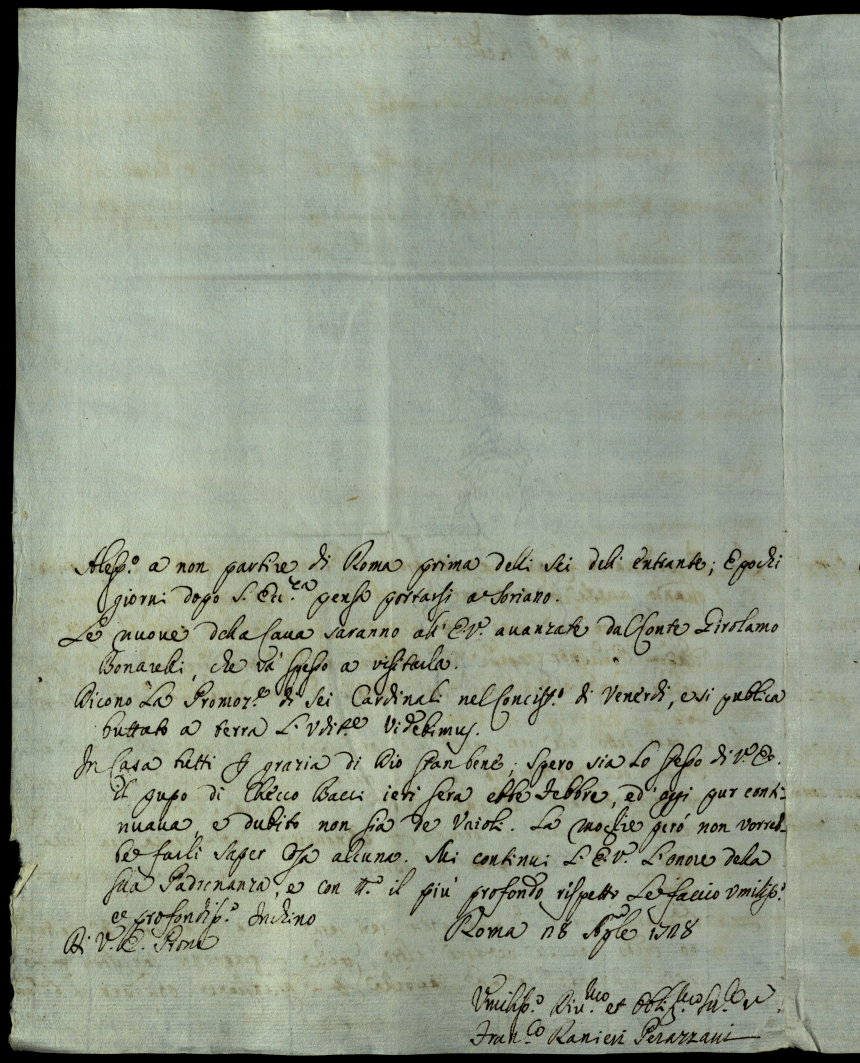 Aless.o a non partire di Roma prima delli sei dell'entrante; e pochi
giorni dopo S. Ecc.za pensa portarsi a Soriano.
Le nuove della Cava saranno all'E.V. avanzate dal Conte Girolamo
Bonarelli, che và spesso a visitarla.
Dicono La Promoz.e di sei Cardinali nel Conciss.o di Venerdì, e si publica
buttato a terra L'Udit.e Videbimus.
In Casa tutti p grazia di Dio stan bene; spero sia Lo stesso di V.E.
Il pupo di Checco Bacci ieri sera ebbe febbre, ed oggi pur conti-
nuava, e dubito non sia de Vaioli. La moglie però non vorreb-
be farli saper cosa alcuna. Mi continui L'E.V. L'onore della
sua Padronanza, e con tt.o il più profondo rispetto Le faccio umiliss.o
e profondiss.o Inchino
Di V.E. Prone
Roma 28 Aprile 1728
Umiliss.o Div.mo et Obblig.mo
Fran.co Ranieri Perazzani